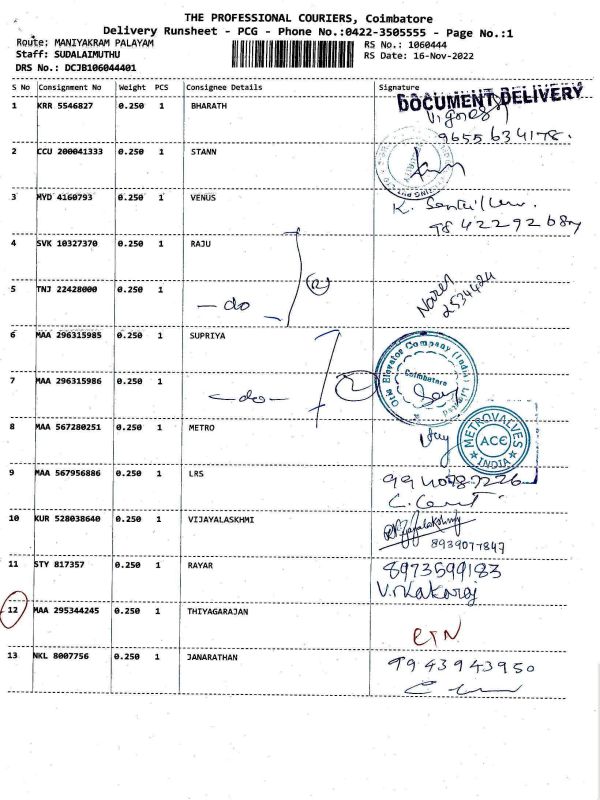 THE PROFESSIONAL COURIERS, Coimbatore
Delivery Runsheet - PCG - Phone No.:0422-3505555 - Page No.:1
Route: MANIYAKRAM PALAYAM
RS No.: 1060444
Staff: SUDALAIMUTHU
RS Date: 16-Nov-2022
DRS No.: DCJB106044401
S No Consignment No Weight PCS Consignee Details Signature
DOCUMENT DELIVERY
1 KRR 5546827 0.250 1 BHARATH
9655634178.
2 CCU 200041333 0.250 1 STANN
3 MYD 4160793 0.250 1 VENUS
K.
4 SVK 10327370 0.250 1 RAJU
2
5 TNJ 22428000 0.250 1
- do
2534424
6 MAA 296315985 0.250 1 SUPRIYA
Elevator Company (India)
Coimbatore
7 MAA 296315986 0.250 1
- do - 2
8 MAA 567280251 0.250 1 METRO
METROVALVES
ACE
★ INDIA ★
9 MAA 567956886 0.250 1 LRS
9940787226
10 KUR 528038640 0.250 1 VIJAYALASKHMI
8939077847
11 STY 817357 0.250 1 RAYAR
8973599183
12 MAA 295344245 0.250 1 THIYAGARAJAN
13 NKL 8007756 0.250 1 JANARATHAN
9943943950